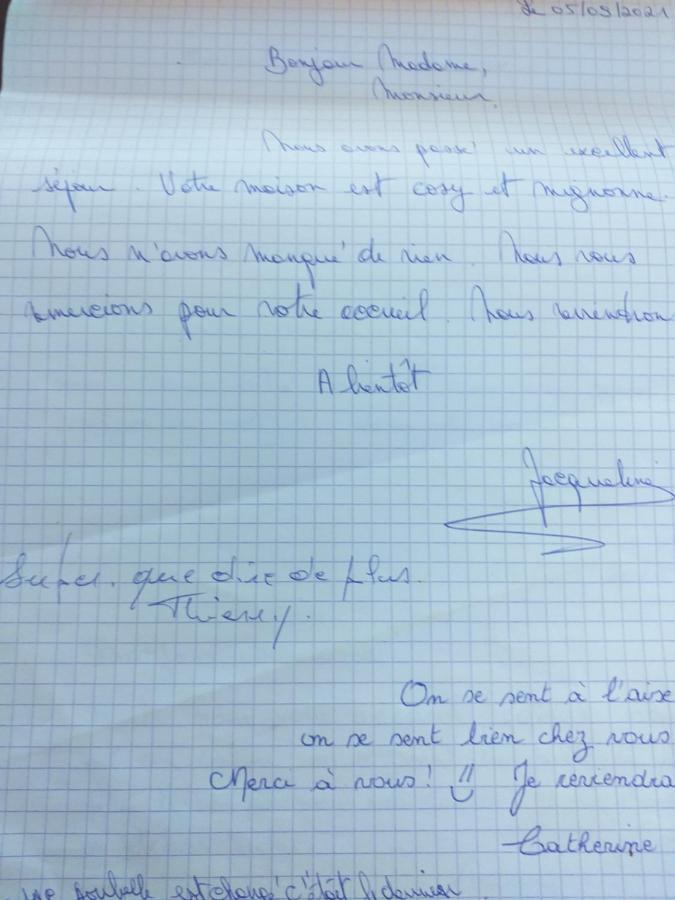 Le 05/09/2021
Bonjour Madame,
Monsieur,
Nous avons passé un excellent
séjour. Votre maison est cosy et mignonne.
Nous n'avons manqué de rien. Nous vous
remercions pour votre acceuil. Nous reviendron
A bientôt
Jacqueline
Super. que dire de plus.
Thierry.
On se sent à l'aise
on se sent bien chez vous
Merci à vous! Je reviendra
Catherine
poubelle est c'était